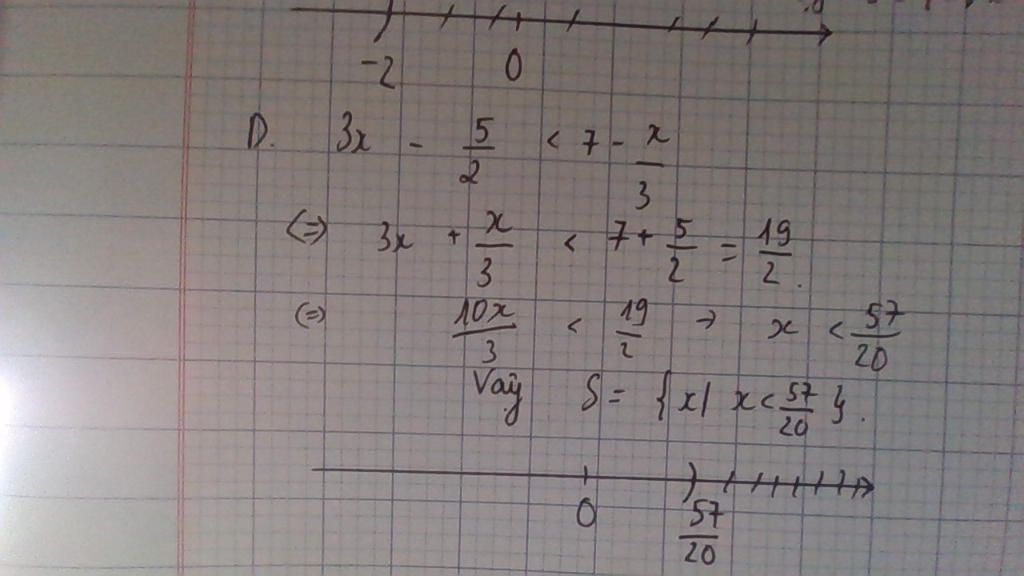 -2 0
D. 3x - 5/2 < 7 - x/3
(=) 3x + x/3 < 7 + 5/2 = 19/2.
(=) 10x/3 < 19/2 → x < 57/20
Vậy S = { x| x < 57/20 }.
0 57/20